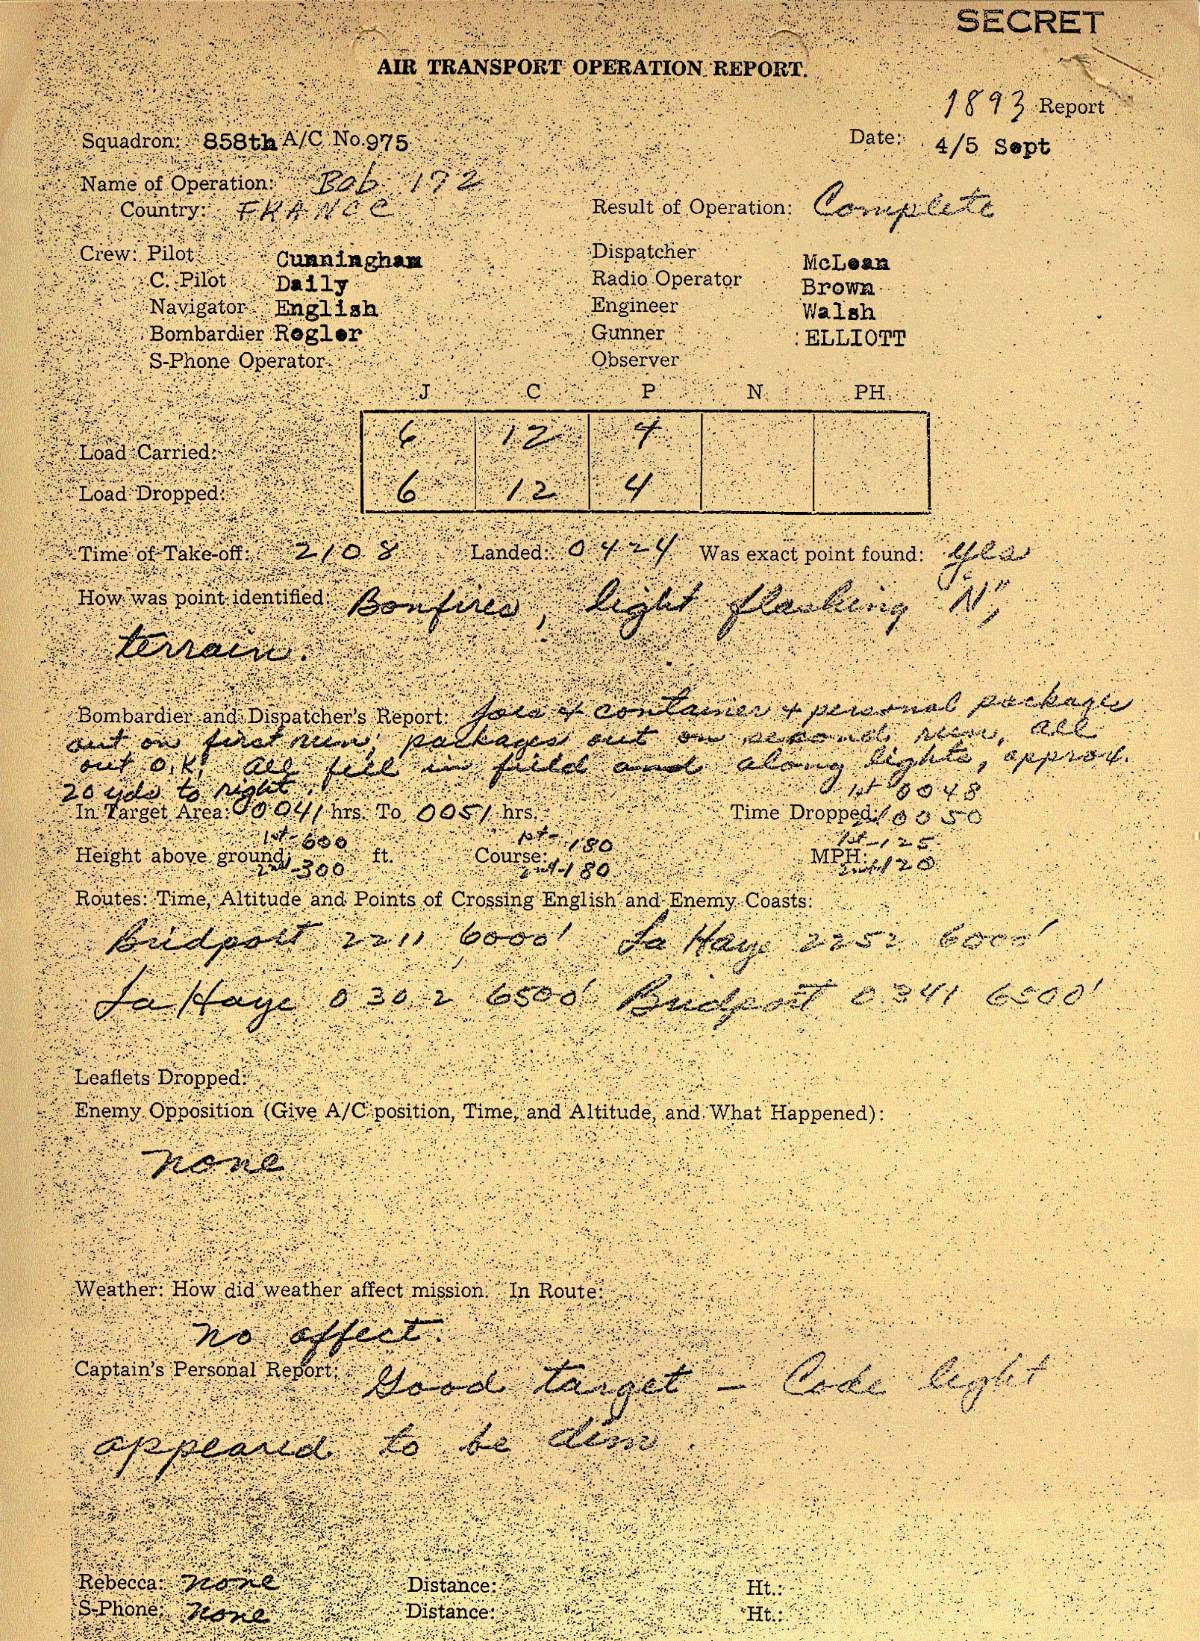 SECRET
AIR TRANSPORT OPERATION REPORT.
1893 Report
Squadron: 858th A/C No. 975 Date: 4/5 Sept
Name of Operation: Bob 172
Country: FRANCE Result of Operation: Complete
Crew: Pilot Cunningham Dispatcher McLean
C. Pilot Daily Radio Operator Brown
Navigator English Engineer Walsh
Bombardier Regler Gunner : ELLIOTT
S-Phone Operator Observer
J C P N PH
Load Carried: 6 12 4
Load Dropped: 6 12 4
Time of Take-off: 2108 Landed: 0424 Was exact point found: yes
How was point identified: Bonfires, light flashing "N",
terrain.
Bombardier and Dispatcher's Report: Joes & container & personal packages
out on first run, packages out on second run, all
out O.K. All fell in field and along lights, approx.
20 yds to right.
In Target Area: 0041 hrs. To 0051 hrs. Time Dropped: 1st 0048
0050
Height above ground: 1st-600 ft. Course: 1st-180 MPH: 1st-125
2nd-300 2nd-180 2nd-120
Routes: Time, Altitude and Points of Crossing English and Enemy Coasts:
Bridport 2211 6000' La Haye 2252 6000'
La Haye 0302 6500' Bridport 0341 6500'
Leaflets Dropped:
Enemy Opposition (Give A/C position, Time, and Altitude, and What Happened):
none
Weather: How did weather affect mission. In Route:
no affect.
Captain's Personal Report: Good target - Code light
appeared to be dim.
Rebecca: none Distance: Ht.:
S-Phone: none Distance: Ht.: